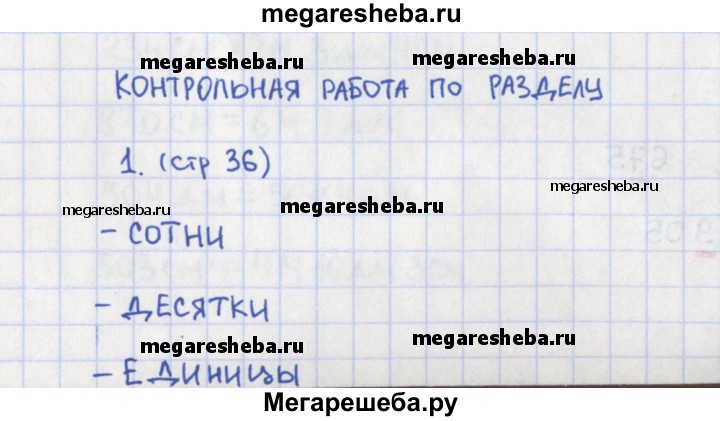 megaresheba.ru
megaresheba.ru megaresheba.ru
КОНТРОЛЬНАЯ РАБОТА ПО РАЗДЕЛУ
1. (стр 36)
megaresheba.ru megaresheba.ru megaresheba.ru
- СОТНИ
- ДЕСЯТКИ
megaresheba.ru megaresheba.ru
- ЕДИНИЦЫ
Мегарешеба.ру